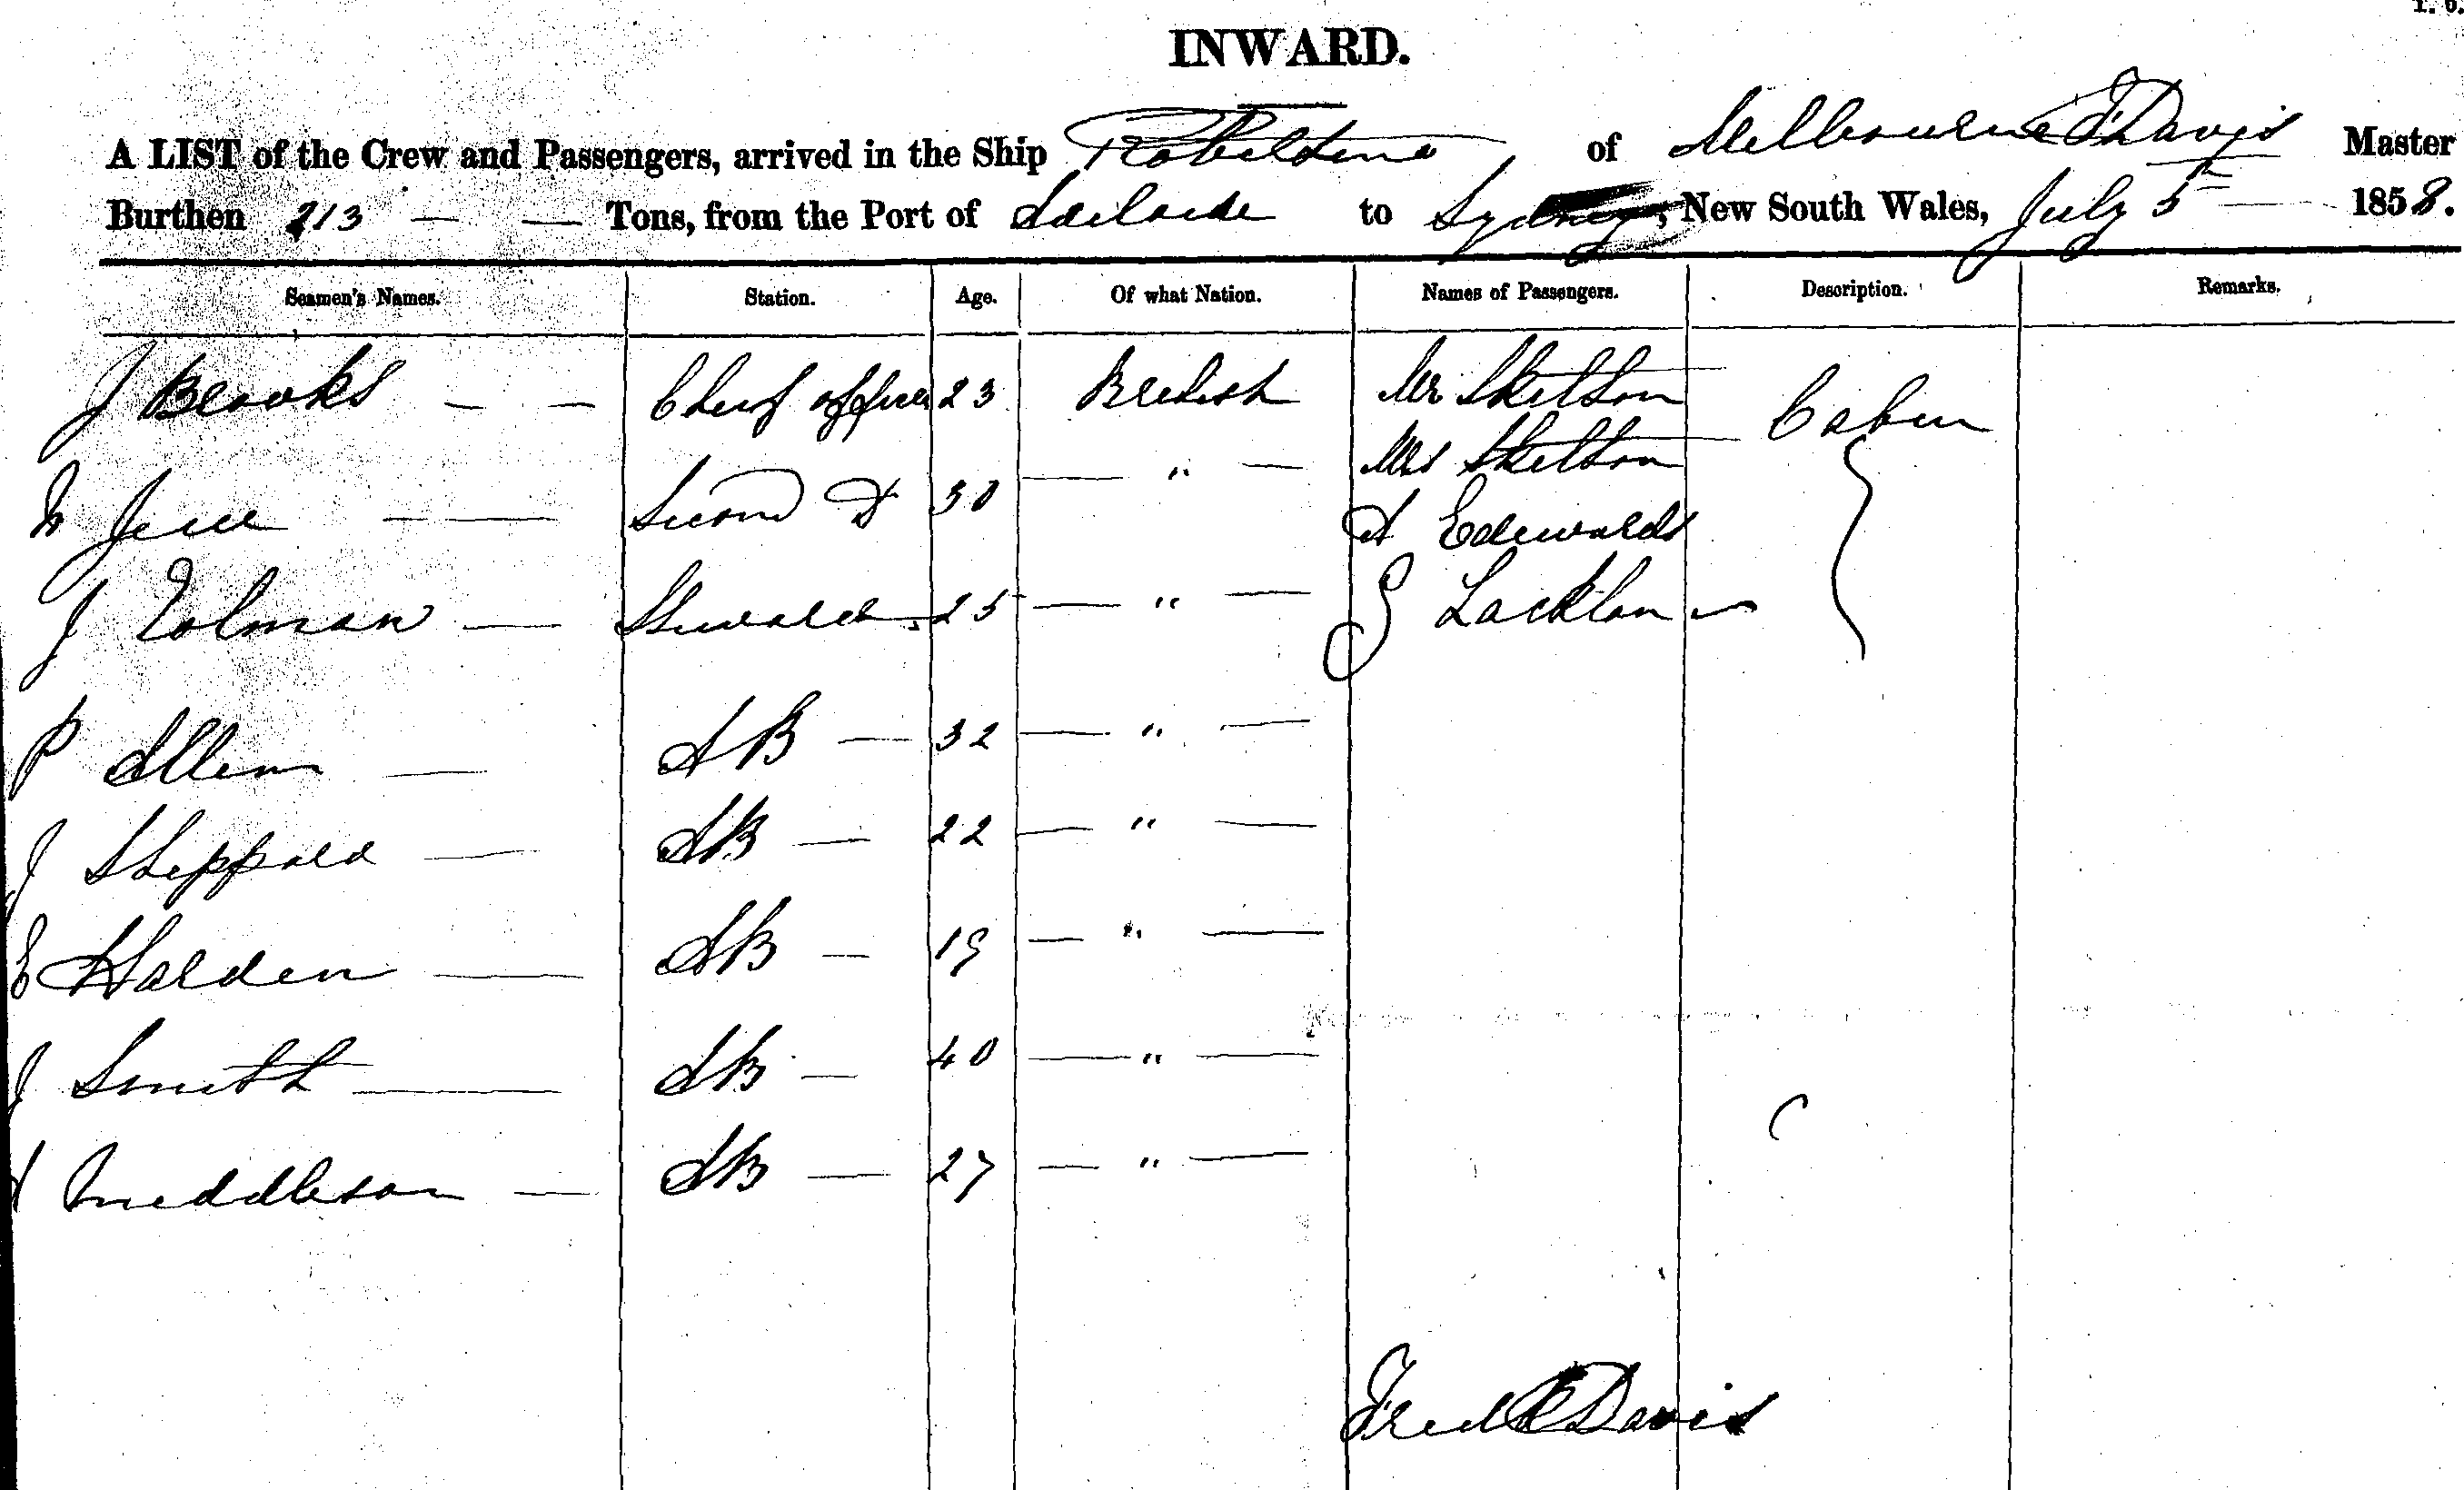 INWARD.
A LIST of the Crew and Passengers, arrived in the Ship Robertina of Melbourne F Davis Master
Burthen 213 — — Tons, from the Port of Adelaide to Sydney, New South Wales, July 5th — 1858.
Seamen's Names. Station. Age. Of what Nation. Names of Passengers. Description. Remarks.
J Brooks — — Chief officer 23 British Mr Skelton Cabin
Mrs Skelton
— Second Do 30 — " — A Edewards
J Tolman — Steward 25 — " — G Lacklan
P Allen — AB — 32 — " —
J Sheppard — AB — 22 — " —
E Harden — AB — 19 — " —
J Smith — AB — 40 — " —
Middleson — AB — 27 — " —
Fredk Davis